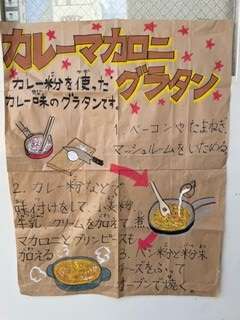 カレーマカロニ
グラタン
カレー粉を使った
カレー味のグラタンです。
1. ベーコンやたまねぎ、
マッシュルームをいためる。
2. カレー粉などで
味付けをして小麦粉
牛乳、クリームを加えて煮、
マカロニとグリンピースも
加える
3. パン粉と粉末
チーズをふって
オーブンで焼く。